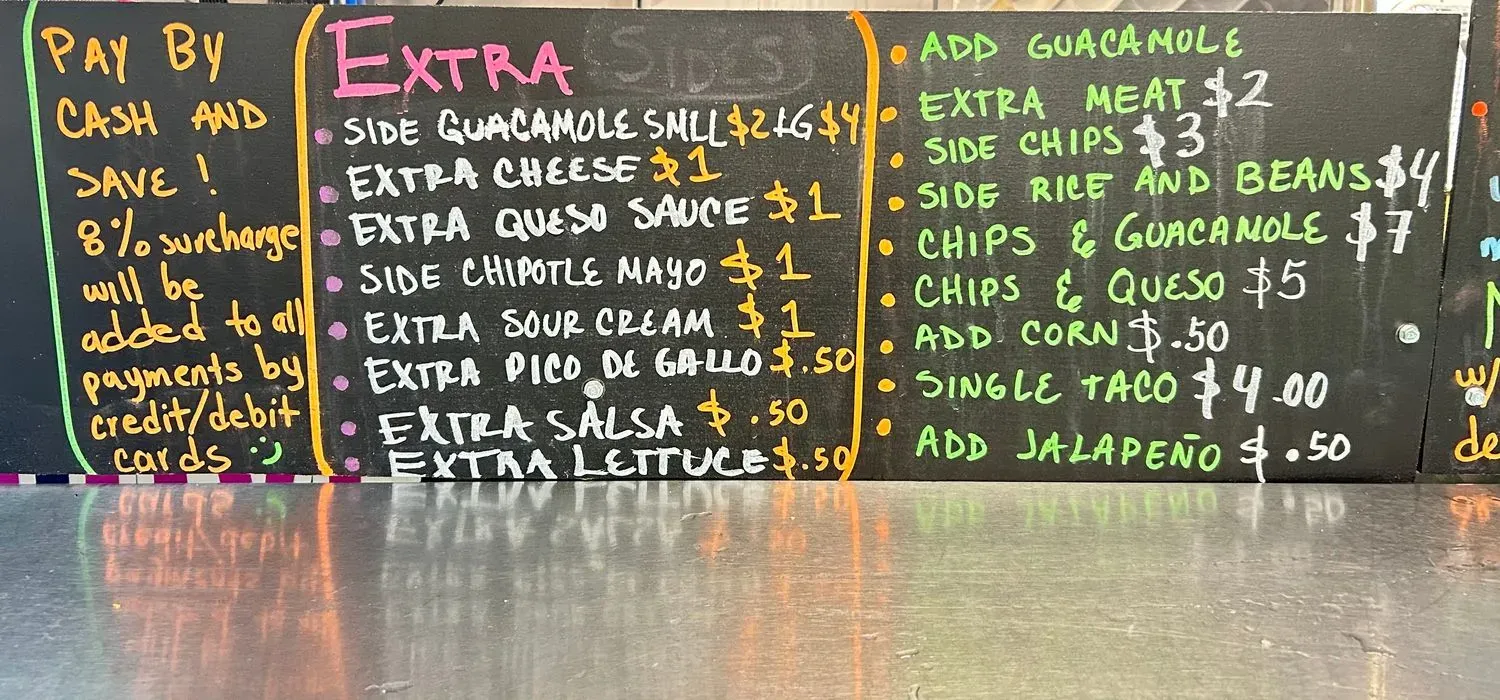 PAY BY
CASH AND
SAVE !
8% surcharge
will be
added to all
payments by
credit/debit
cards :)
EXTRA SIDES
SIDE GUACAMOLE SMLL $2 LG $4
EXTRA CHEESE $1
EXTRA QUESO SAUCE $1
SIDE CHIPOTLE MAYO $1
EXTRA SOUR CREAM $1
EXTRA PICO DE GALLO $.50
EXTRA SALSA $.50
EXTRA LETTUCE $.50
ADD GUACAMOLE
EXTRA MEAT $2
SIDE CHIPS $3
SIDE RICE AND BEANS $4
CHIPS & GUACAMOLE $7
CHIPS & QUESO $5
ADD CORN $.50
SINGLE TACO $4.00
ADD JALAPEÑO $.50
w/
de